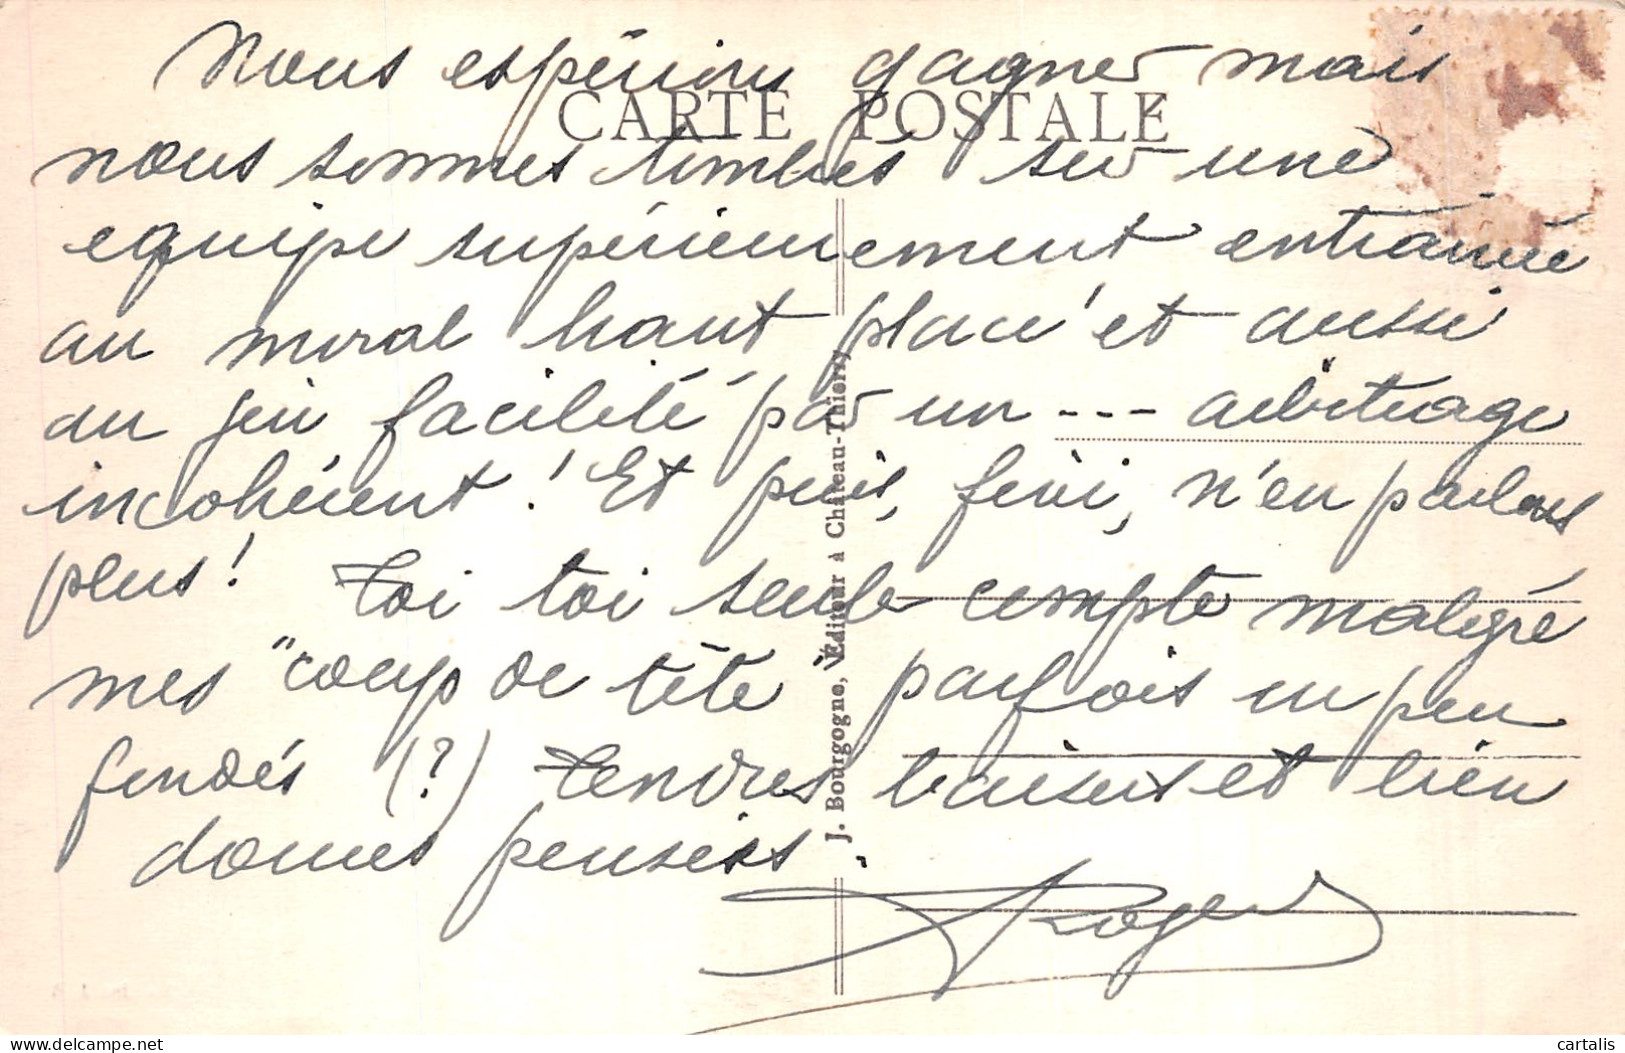 Nous espérions gagner mais
CARTE POSTALE
nous sommes tombés sur une
equipe supérieurement entrainée
au moral haut placé et aussi
au jeu facilité par un --- arbitrage
incohérent ! Et puis, fini, n'en parlons
plus ! Toi toi seule compte malgré
mes "coup de tête parfois un peu
fondés (?) Tendres baisers et bien
douces pensées.
Roger
J. Bourgogne, Editeur à Château-Thierry
delcampe.net
cartalis